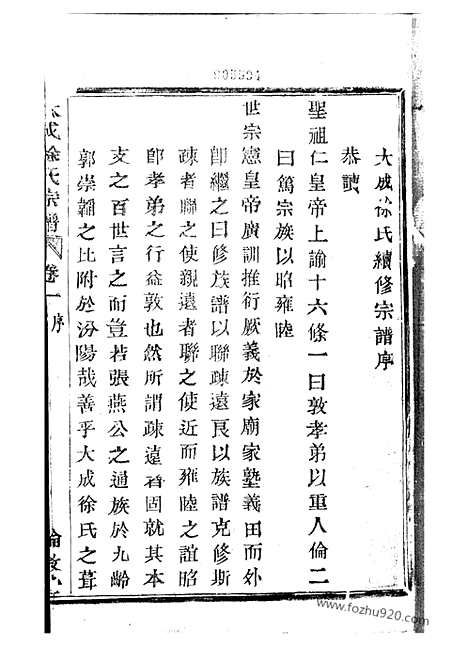 003594
大成徐氏續修宗譜序
恭讀
聖祖仁皇帝上諭十六條一曰敦孝弟以重人倫二
曰篤宗族以昭雍睦
世宗憲皇帝廣訓推衍厥義於家廟家塾義田而外
卽繼之曰修族譜以聯疎遠良以族譜克修斯
疎者聯之使親遠者聯之使近而雍睦之誼昭
卽孝弟之行益敦也然所謂疎遠者固就其本
支之百世言之而豈若張燕公之通族於九齡
郭崇韜之比附於汾陽哉善乎大成徐氏之葺
大成徐氏宗譜 卷一 序
倫敘
www.fozhu920.com